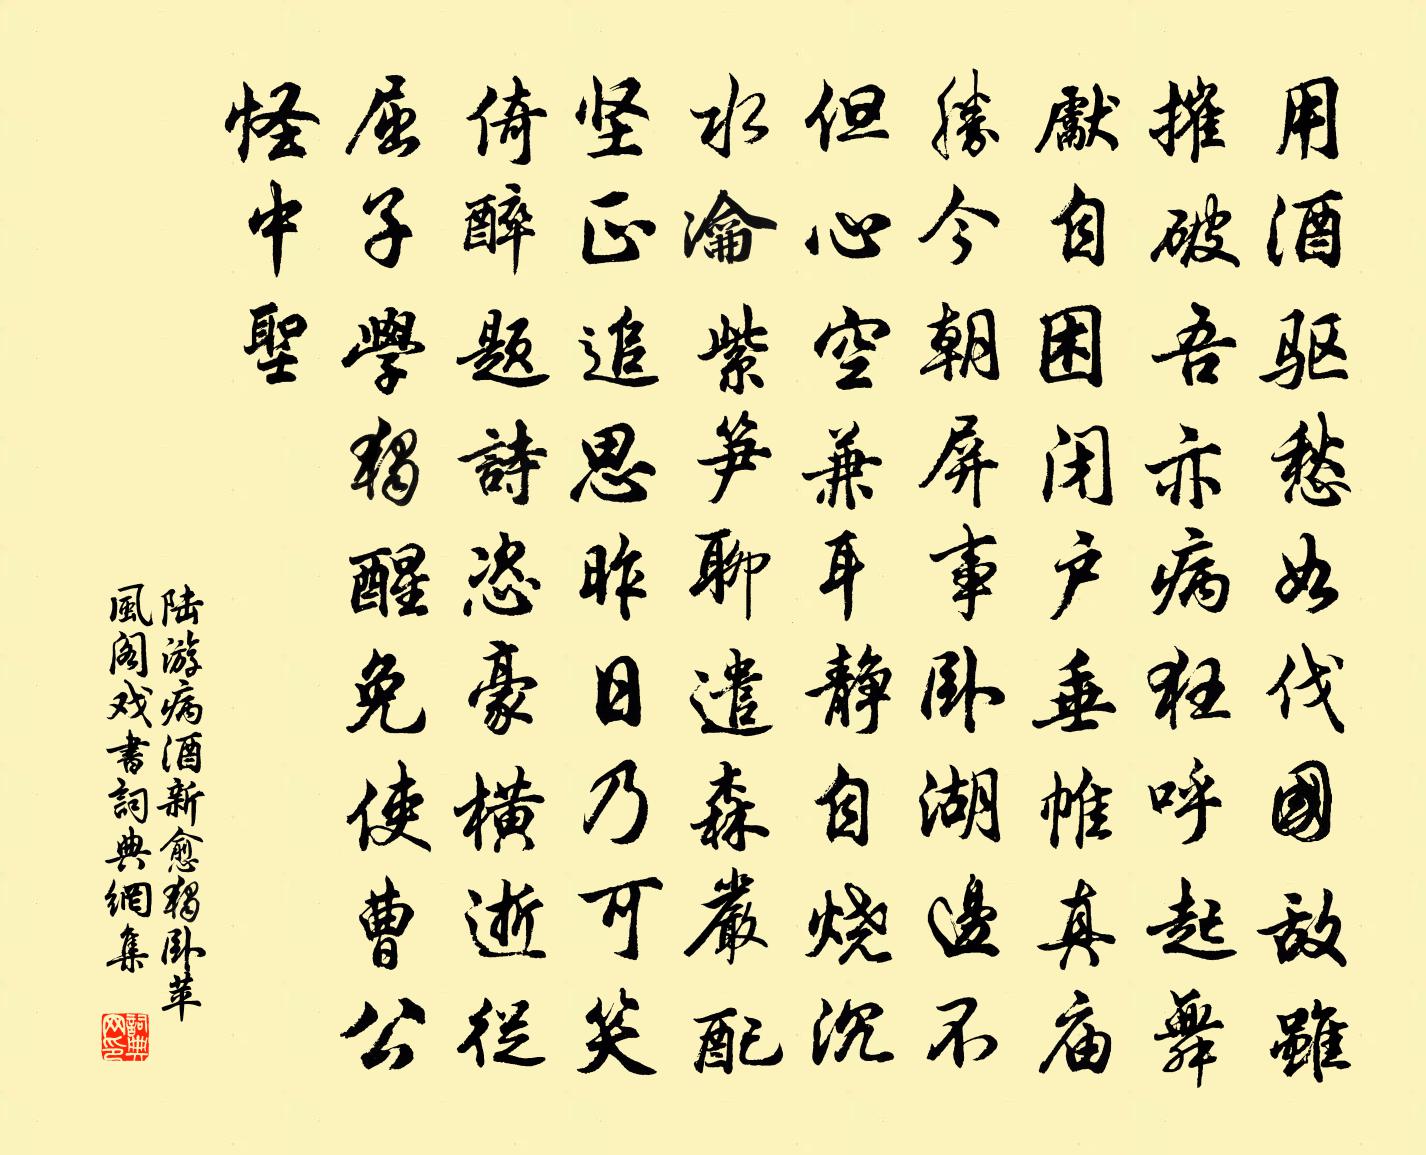 用酒驱愁如伐國敌雖
摧破吾亦病狂呼起舞
獻自困闭户垂帷真庙
勝今朝屏事卧湖邊不
但心空兼耳静自烧沉
水瀹紫笋聊遣森嚴配
坚正追思昨日乃可笑
倚醉題詩恣豪横逝從
屈子學獨醒免使曹公
怪中聖
陆游病酒新愈獨卧苹
風阁戏書詞典網集
詞典网印